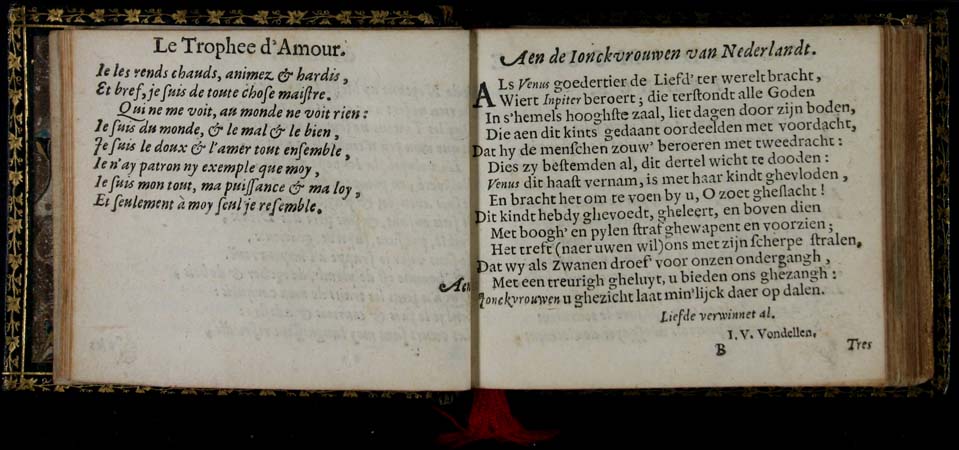 Le Trophee d'Amour.
Ie les rends chauds, animez & hardis,
Et bref, je ſuis de toute choſe maiſtre.
Qui ne me voit, au monde ne voit rien:
Ie ſuis du monde, & le mal & le bien,
Je ſuis le doux & l'amer tout enſemble,
Ie n'ay patron ny exemple que moy,
Ie ſuis mon tout, ma puiſſance & ma loy,
Et ſeulement à moy ſeul je reſemble.
Aen
Aen de Ionckvrouwen van Nederlandt.
ALs Venus goedertier de Liefd' ter werelt bracht,
Wiert Iupiter beroert; die terſtondt alle Goden
In s'hemels hooghſte zaal, liet dagen door zijn boden,
Die aen dit kints gedaant oordeelden met voordacht,
Dat hy de menſchen zouw' beroeren met tweedracht:
Dies zy beſtemden al, dit dertel wicht te dooden:
Venus dit haaſt vernam, is met haar kindt ghevloden,
En bracht het om te voen by u, O zoet gheſlacht!
Dit kindt hebdy ghevoedt, gheleert, en boven dien
Met boogh' en pylen ſtraf ghewapent en voorzien;
Het treft (naer uwen wil) ons met zijn ſcherpe ſtralen,
Dat wy als Zwanen droef voor onzen ondergangh,
Met een treurigh gheluyt, u bieden ons ghezangh:
Jonckvrouwen u ghezicht laat min'lijck daer op dalen.
Liefde verwinnet al.
I. V. Vondellen.
B
Tres